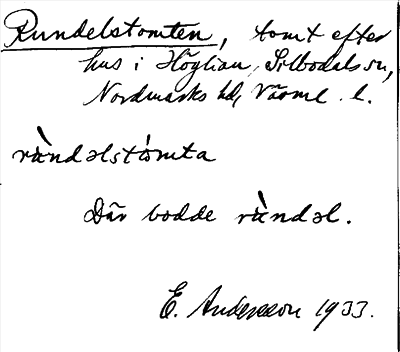 Rundelstomten, tomt efter
hus i Höglian, Silbodals sn,
Nordmarks hd, Värml. l.
rùndəlstòmta
Där bodde rùndəl.
E. Andersson 1933.